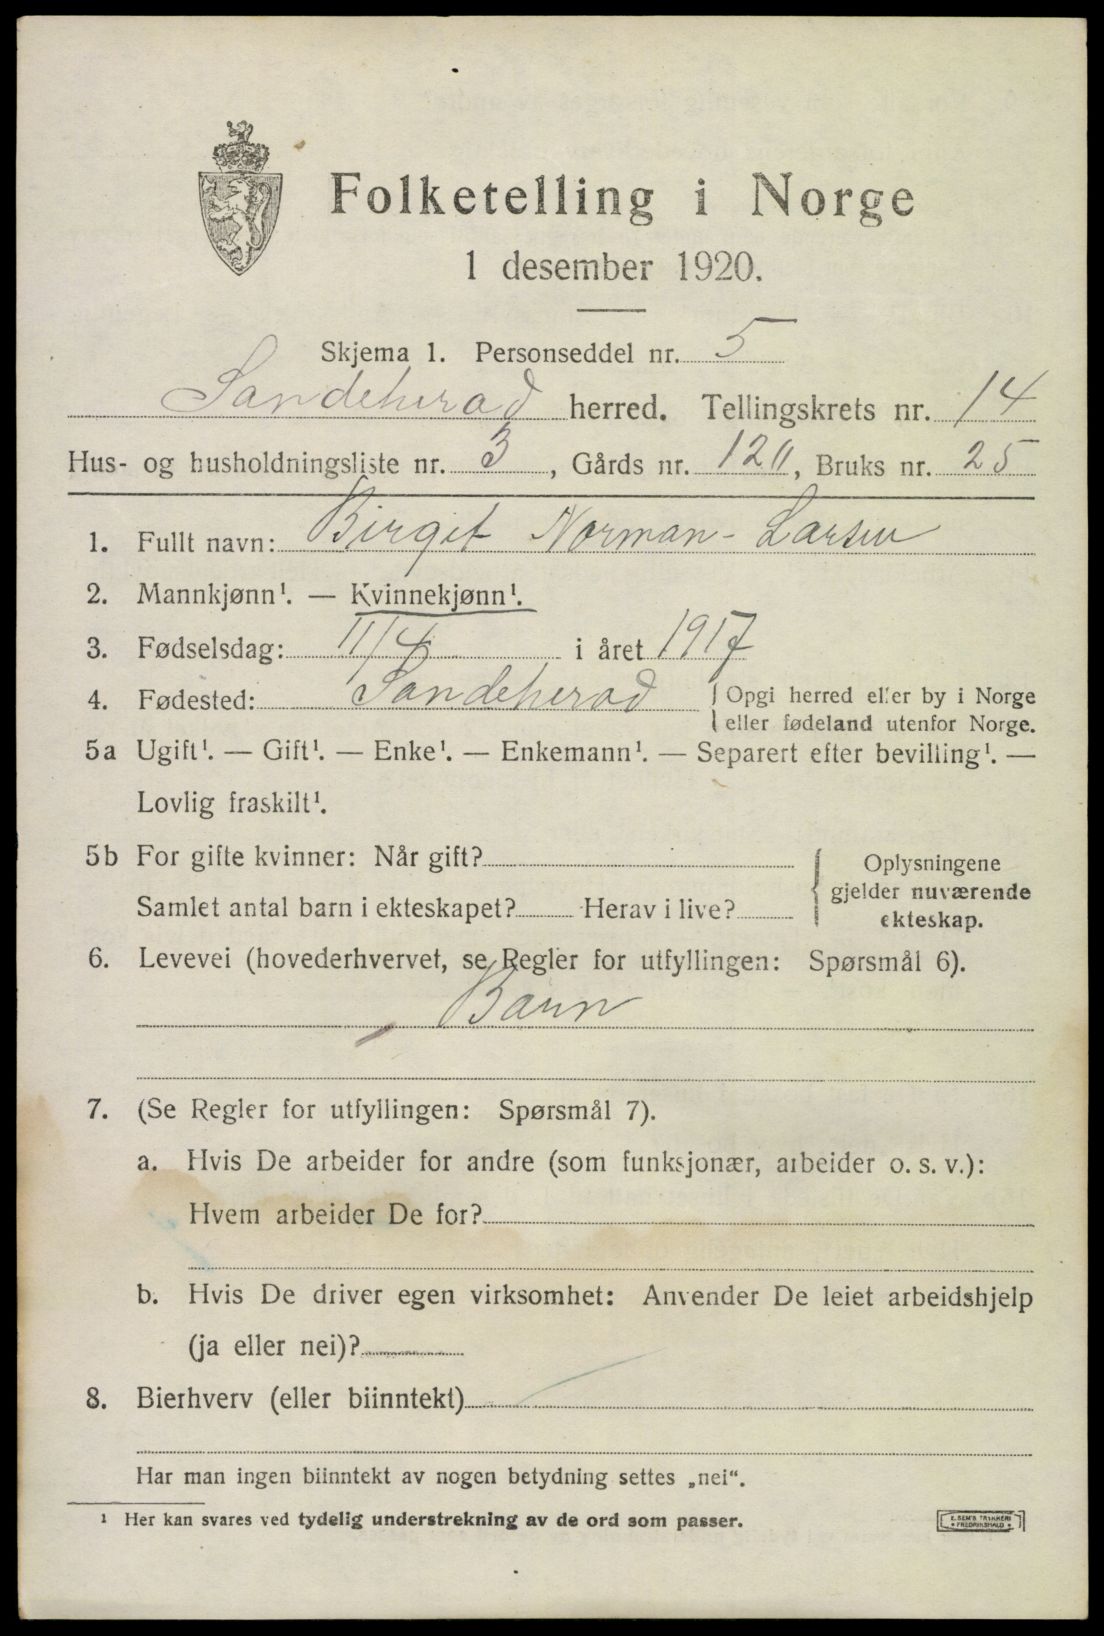 Folketelling i Norge
1 desember 1920.
Skjema 1. Personseddel nr. 5
Sandeherad herred. Tellingskrets nr. 14
Hus- og husholdningsliste nr. 3, Gårds nr. 120, Bruks nr. 25
1. Fullt navn: Birgit Norman-Larsen
2. Mannkjønn¹. — Kvinnekjønn¹.
3. Fødselsdag: 11/4 i året 1917
4. Fødested: Sandeherad Opgi herred eller by i Norge
eller fødeland utenfor Norge.
5a Ugift¹. — Gift¹. — Enke¹. — Enkemann¹. — Separert efter bevilling¹. —
Lovlig fraskilt¹.
5b For gifte kvinner: Når gift? Oplysningene
gjelder nuværende
Samlet antal barn i ekteskapet? Herav i live? ekteskap.
6. Levevei (hovederhvervet, se Regler for utfyllingen: Spørsmål 6).
Barn
7. (Se Regler for utfyllingen: Spørsmål 7).
a. Hvis De arbeider for andre (som funksjonær, arbeider o. s. v.):
Hvem arbeider De for?
b. Hvis De driver egen virksomhet: Anvender De leiet arbeidshjelp
(ja eller nei)?
8. Bierhverv (eller biinntekt)
Har man ingen biinntekt av nogen betydning settes „nei“.
¹ Her kan svares ved tydelig understrekning av de ord som passer.
E. SEM'S TRYKKERI
FREDRIKSHALD